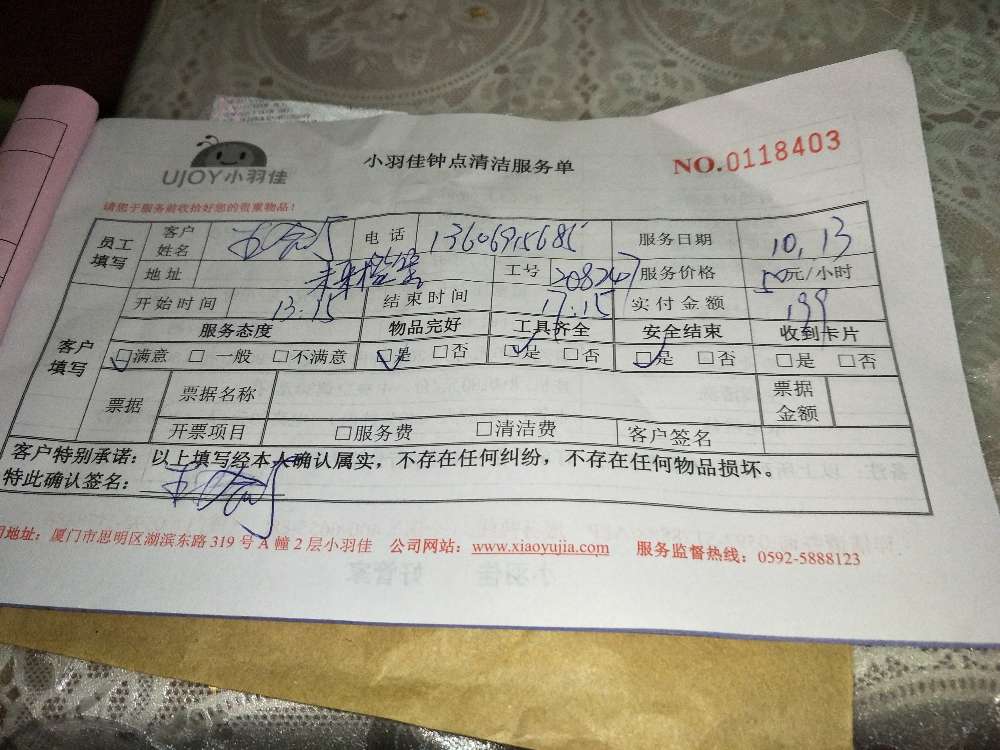 UJOY小羽佳
小羽佳钟点清洁服务单
NO.0118403
请您于服务前收拾好您的贵重物品!
员工填写 客户姓名 电话 13606915685 服务日期 10.13
地址 未来橙堡 工号 208247 服务价格 50元/小时
客户填写 开始时间 13:15 结束时间 17:15 实付金额 199
服务态度 物品完好 工具齐全 安全结束 收到卡片
☑满意 □一般 □不满意 ☑是 □否 ☑是 □否 ☑是 □否 □是 □否
票据 票据名称 票据金额
开票项目 □服务费 □清洁费 客户签名
客户特别承诺:以上填写经本人确认属实,不存在任何纠纷,不存在任何物品损坏。
特此确认签名:
司地址:厦门市思明区湖滨东路 319 号 A 幢 2 层小羽佳 公司网站:www.xiaoyujia.com 服务监督热线:0592-5888123